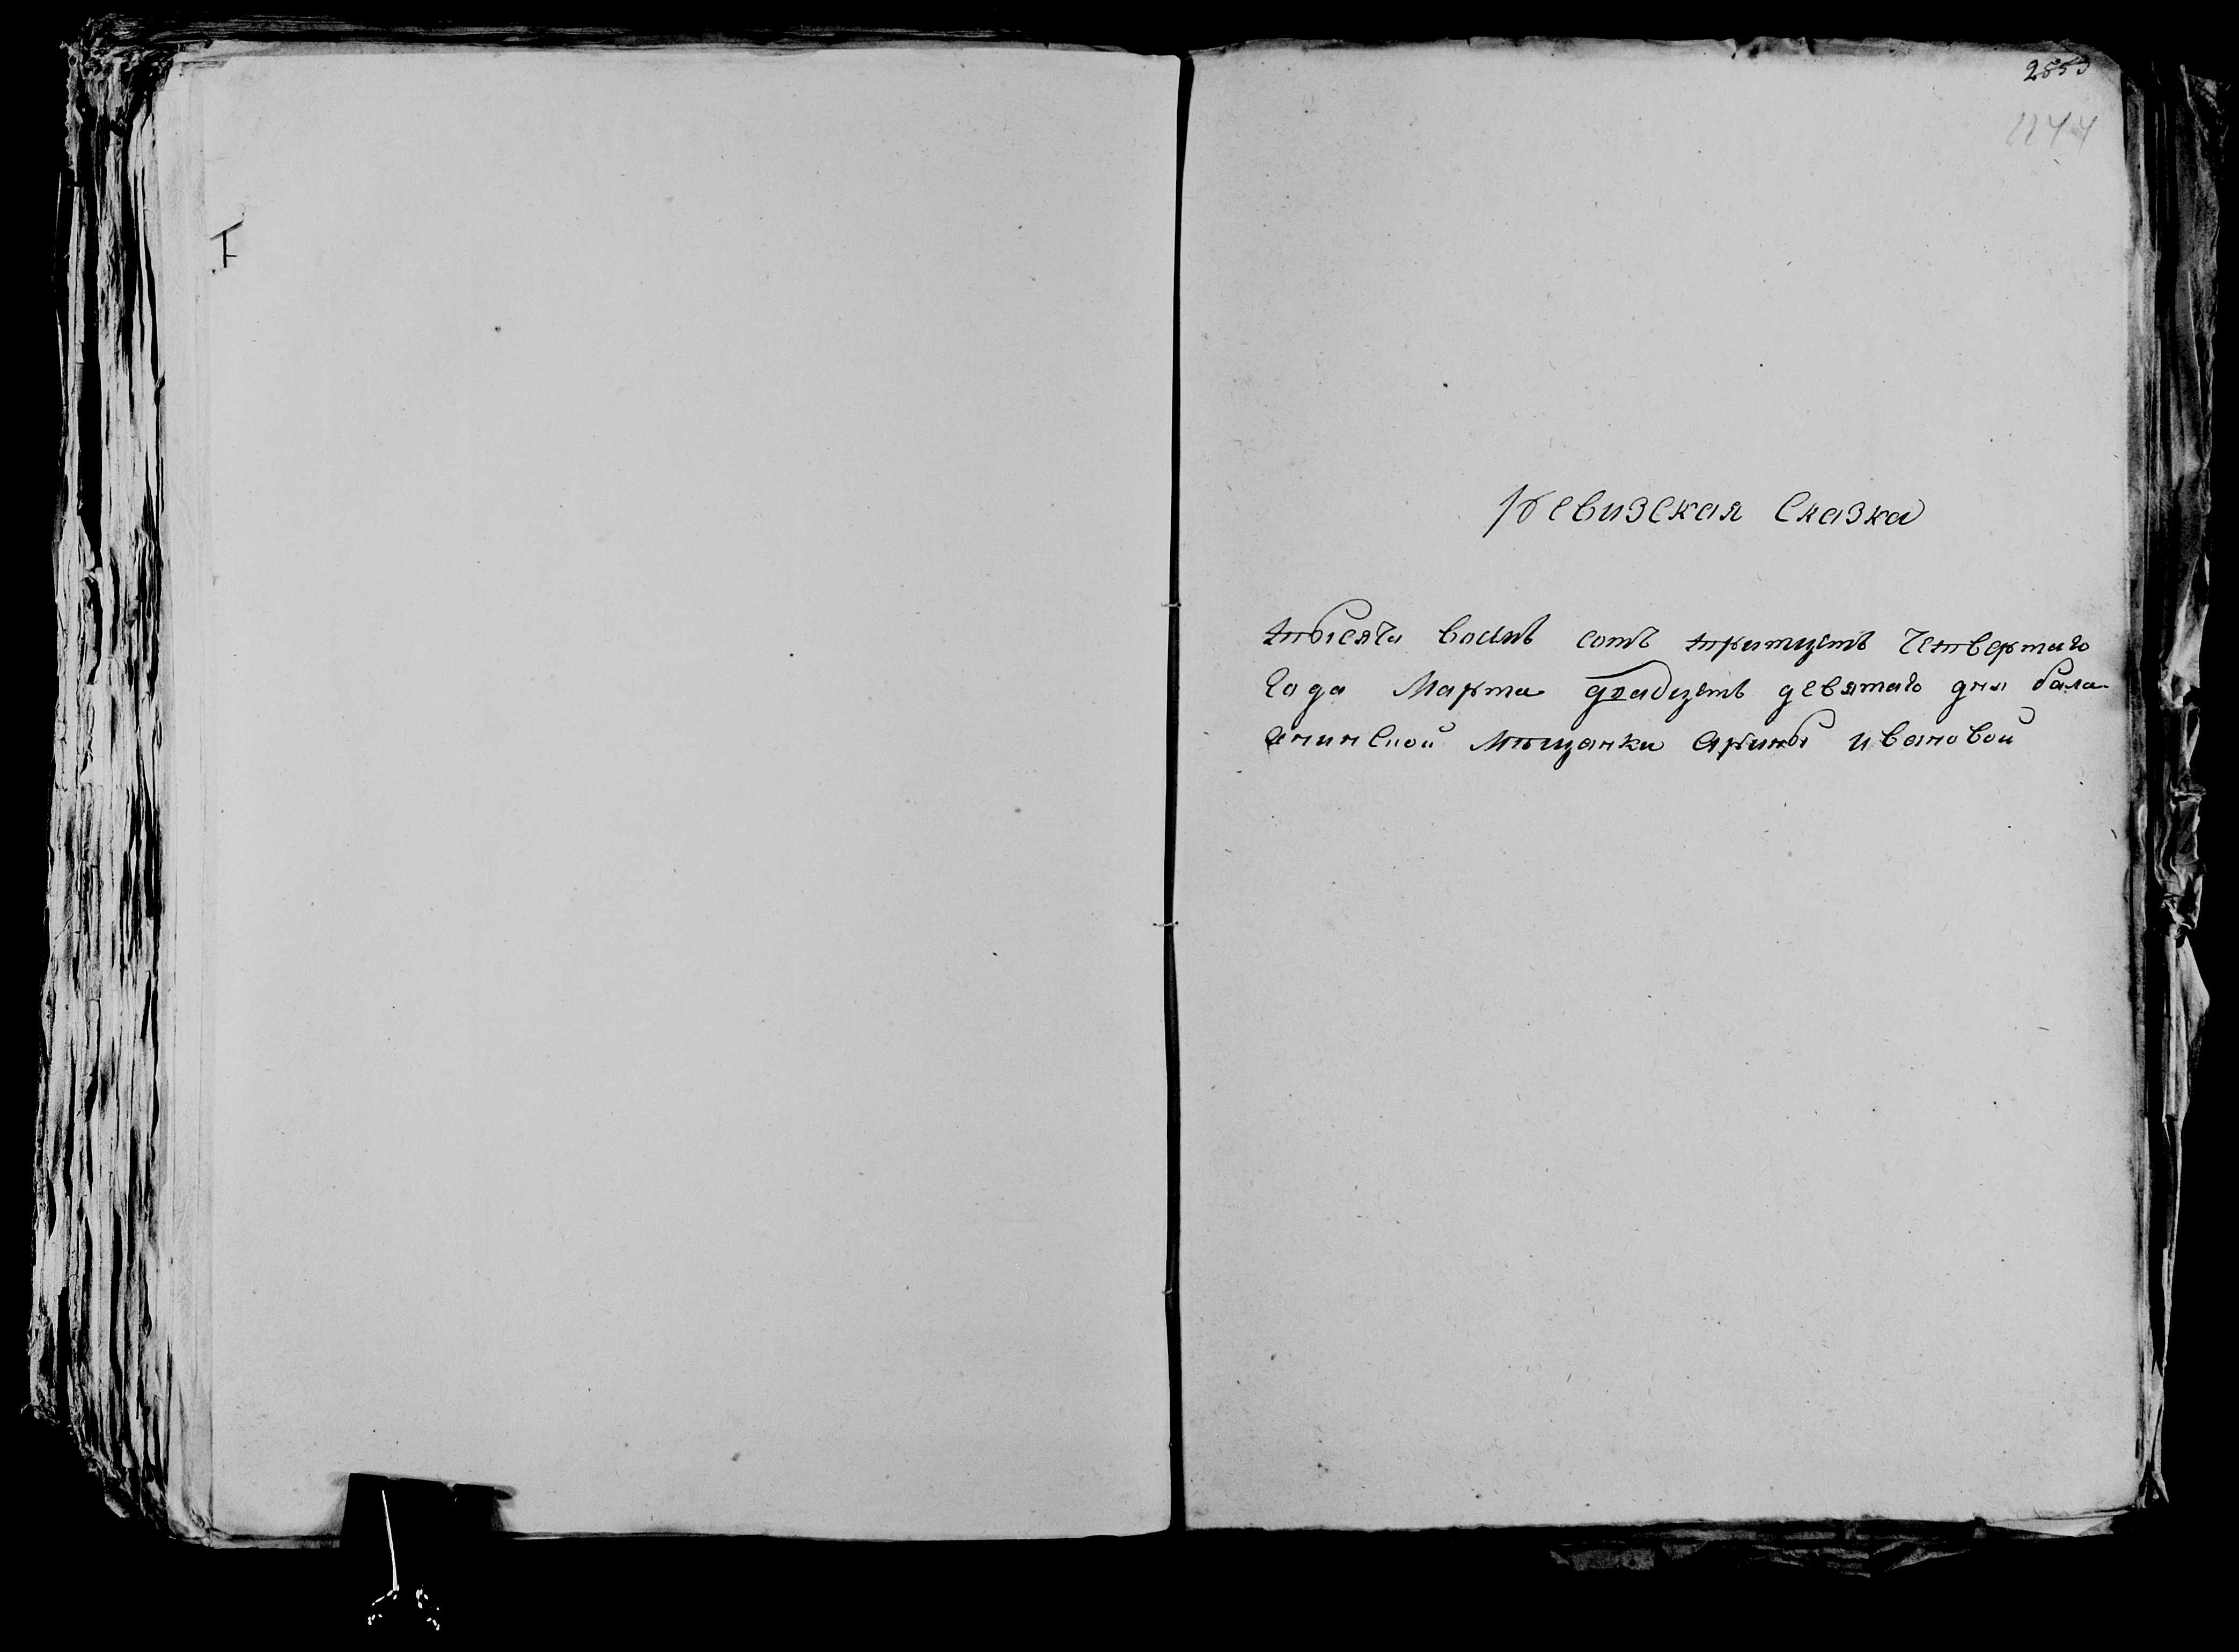 1144
Ревизская Сказка
тысеча восмъ сотъ тритцеть Четвертаго
Года Марта двадцеть девятаго дня бала-
хнинской мѣщанки Арины ивановой